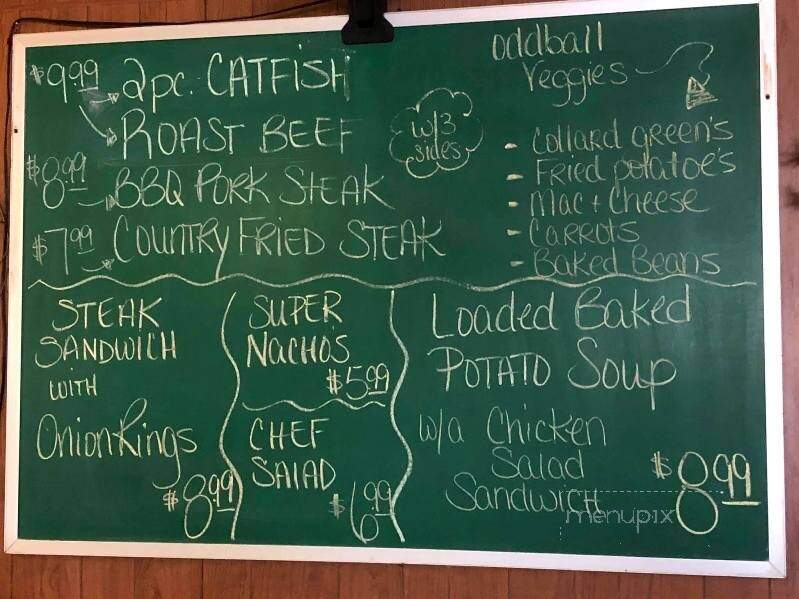 $9.99 2pc. CATFISH
ROAST BEEF
$8.99 BBQ PORK STEAK
$7.99 COUNTRY FRIED STEAK
w/3
sides
oddball
veggies
- Collard green's
- Fried potatoe's
- Mac + Cheese
- Carrots
- Baked Beans
STEAK
SANDWICH
WITH
Onion Rings
$8.99
SUPER
NACHOS
$5.99
CHEF
SALAD
$6.99
Loaded Baked
POTATO Soup
w/a Chicken
Salad
Sandwich
$8.99
menupix